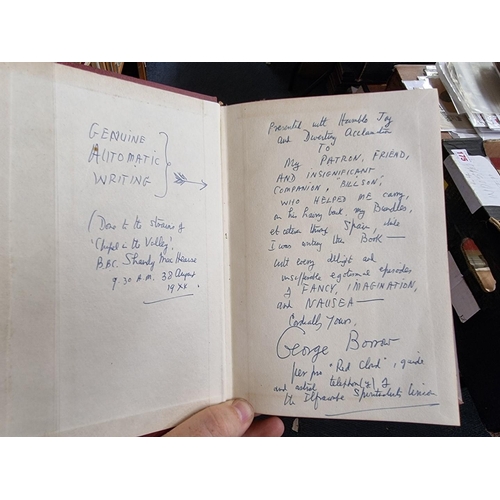 GENUINE
AUTOMATIC
WRITING
(Done to the strains of
'Chapel in the Valley'.
B.B.C. Shandy Mac
9.30 A.M. 38 August
19XX.
Presented with Humble Joy
and Diverting Acclamation
TO
My PATRON, FRIEND,
AND INSIGNIFICANT
COMPANION, "BILLSON",
WHO HELPED ME carry,
on his hairy back, my Bundles,
et cetera through Spain, while
I was writing this BOOK —
with every delight and
insufferable egotismal episodes
of FANCY, IMAGINATION,
and NAUSEA —
Cordially Yours,
George Borrow
per pro "Red Cloud", guide
and astral telephon(y) of
the Ilfracombe Spiritualists Union